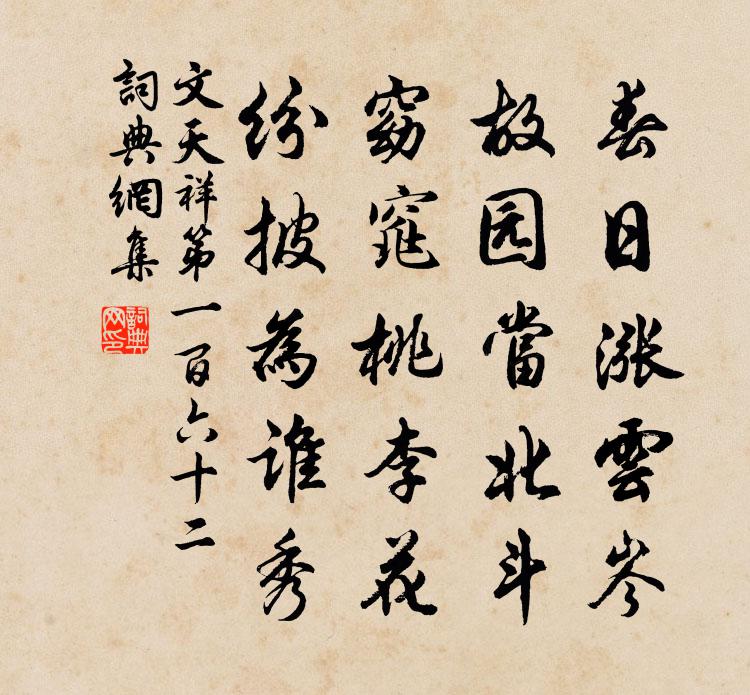 春日涨雲岑
故园當北斗
窈窕桃李花
紛披為誰秀
文天祥第一百六十二
詞典網集
詞典网印